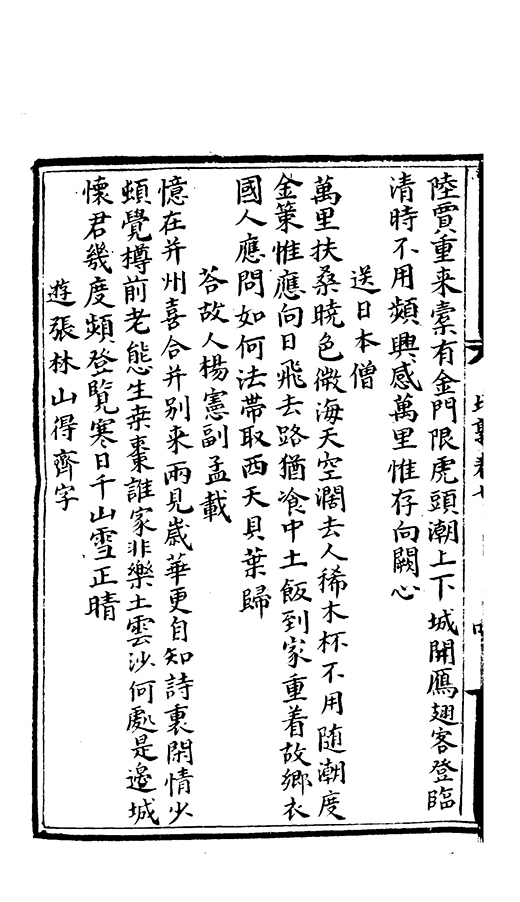 陸賈重来槖有金門限虎頭潮上下城開鴈翅客登臨
清時不用頻興感萬里惟存向闕心
送日本僧
萬里扶桑暁色微海天空濶去人稀木杯不用随潮度
金策惟應向日飛去路猶飡中土飯到家重着故鄉衣
國人應問如何法帶取西天貝葉歸
荅故人楊憲副孟載
憶在并州喜合并别来兩見歳華更自知詩裏閑情少
頓覺樽前老態生桒棗誰家非樂土雲沙何處是邉城
懷君幾度頻登覧寒日千山雪正晴
遊張林山得齊字